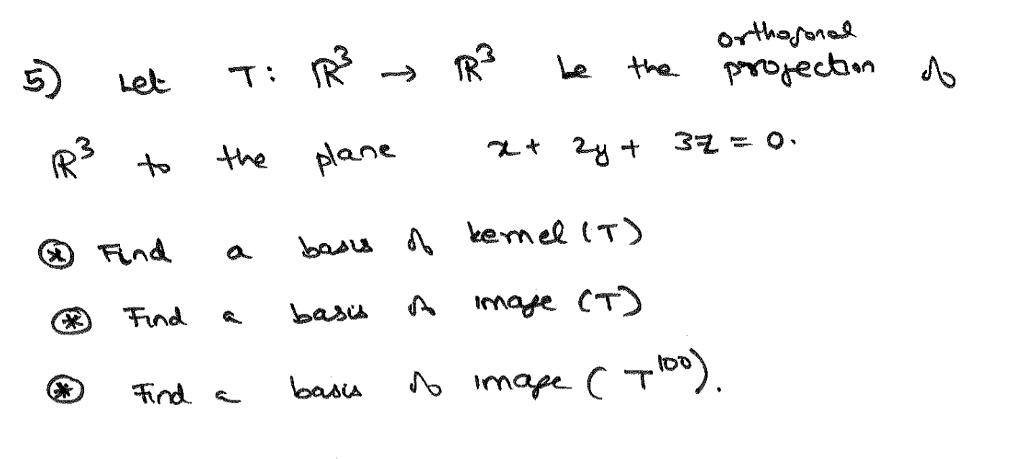 5) Let T: ℝ³ → ℝ³ be the orthogonal projection of
ℝ³ to the plane x + 2y + 3z = 0.
⊛ Find a basis of kernel (T)
⊛ Find a basis of image (T)
⊛ Find a basis of image (T¹⁰⁰).